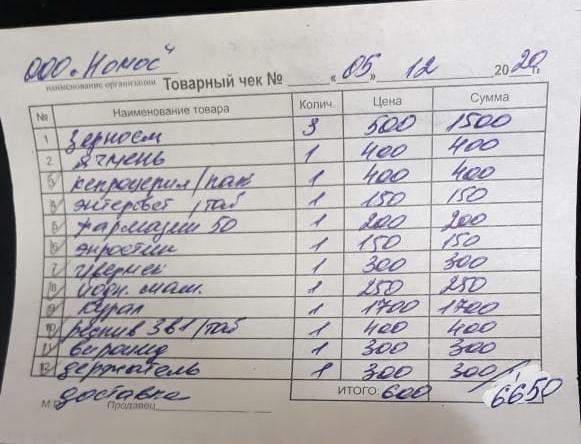 ООО "Номос"
наименование организации Товарный чек № "05" 12 2020 г.
№ Наименование товара Колич. Цена Сумма
1 Зерносм 3 500 1500
2 Ячмень 1 400 400
3 кепроцерил/пак 1 400 400
4 энтеровет /таб 1 150 150
5 фармазин 50 1 200 200
6 энростин 1 150 150
7 ивермек 1 300 300
8 1 250 250
9 1 1700 1700
10 3в1/таб 1 400 400
11 1 300 300
12 держатель 1 300 300
доставка ИТОГО: 600 6650
М.П. Продавец